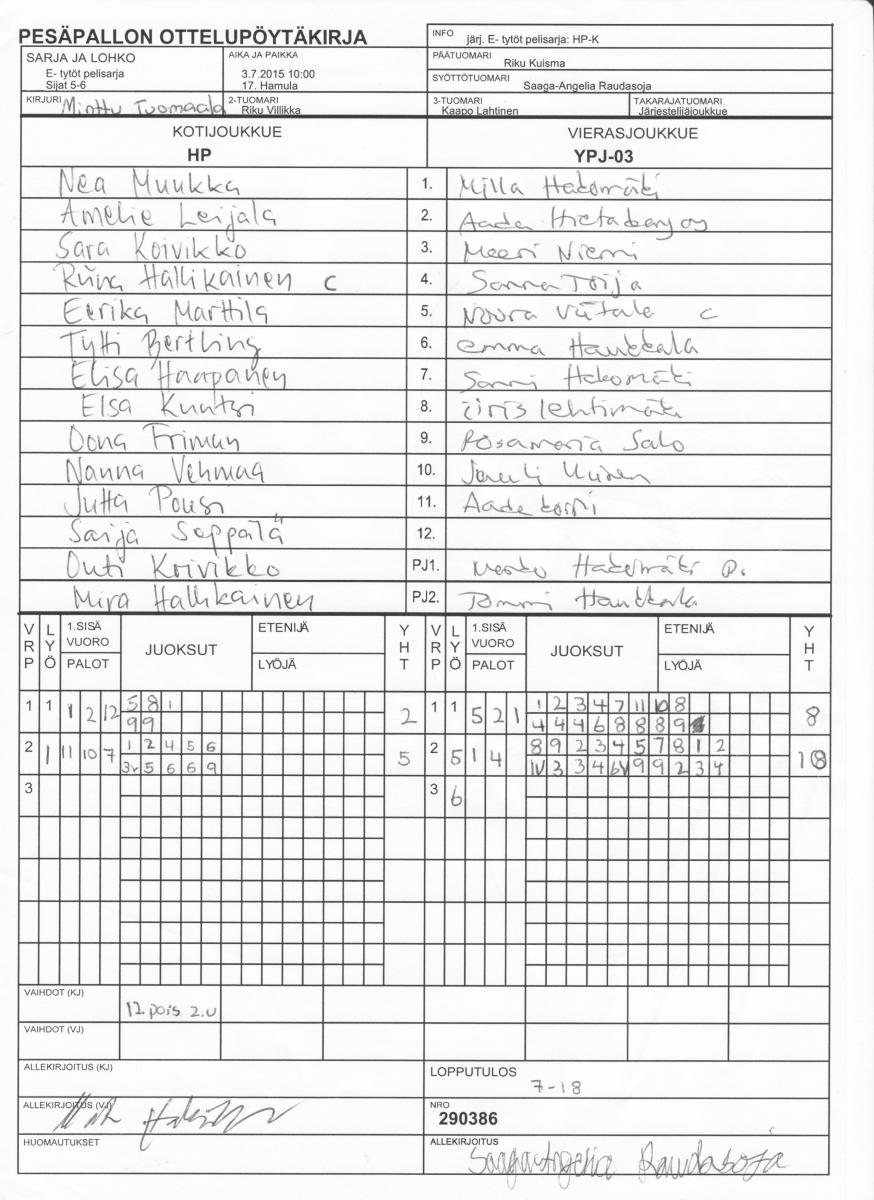 PESÄPALLON OTTELUPÖYTÄKIRJA
INFO järj. E- tytöt pelisarja: HP-K
SARJA JA LOHKO
E- tytöt pelisarja
Sijat 5-6
AIKA JA PAIKKA
3.7.2015 10:00
17. Hamula
PÄÄTUOMARI Riku Kuisma
SYÖTTÖTUOMARI Saaga-Angelia Raudasoja
KIRJURI Minttu Tuomaala
2-TUOMARI
Riku Villikka
3-TUOMARI
Kaapo Lahtinen
TAKARAJATUOMARI
Järjestelijäjoukkue
KOTIJOUKKUE VIERASJOUKKUE
HP YPJ-03
Nea Muukka 1. Milla Hakomäki
Amelie Leijala 2. Aada
Sara Koivikko 3. Meeri Niemi
Riina Hallikainen C 4. Sanna Toija
Eerika Marttila 5. Noora Viitala C
Tytti Bertling 6. emma Haukkala
Elisa Haapanen 7. Sanni Hakomäki
Elsa Kuntsi 8. iiris lehtimäki
Oona Friman 9. Rosamaria Salo
Nanna Vehmaa 10.
Jutta Pousi 11. Aada
Saija Seppälä 12.
Outi Koivikko PJ1. Hakomäki
Mira Hallikainen PJ2. Tommi Haukkala
VRP LYÖ 1.SISÄ VUORO PALOT JUOKSUT ETENIJÄ LYÖJÄ YHT VRP LYÖ 1.SISÄ VUORO PALOT JUOKSUT ETENIJÄ LYÖJÄ YHT
1 1 1 2 12 5 8 1 2 1 1 5 2 1 1 2 3 4 7 11 10 8 8
9 9 4 4 4 6 8 8 8 9
2 1 11 10 7 1 2 4 5 6 5 2 5 1 4 8 9 2 3 4 5 7 8 1 2 18
3v 5 6 6 9 1V 3 3 4 6V 9 9 2 3 4
3 3 6
VAIHDOT (KJ) 12.pois 2.v
VAIHDOT (VJ)
ALLEKIRJOITUS (KJ)
LOPPUTULOS
7-18
ALLEKIRJOITUS (VJ)
NRO
290386
HUOMAUTUKSET
ALLEKIRJOITUS
Saaga-Angelia Raudasoja